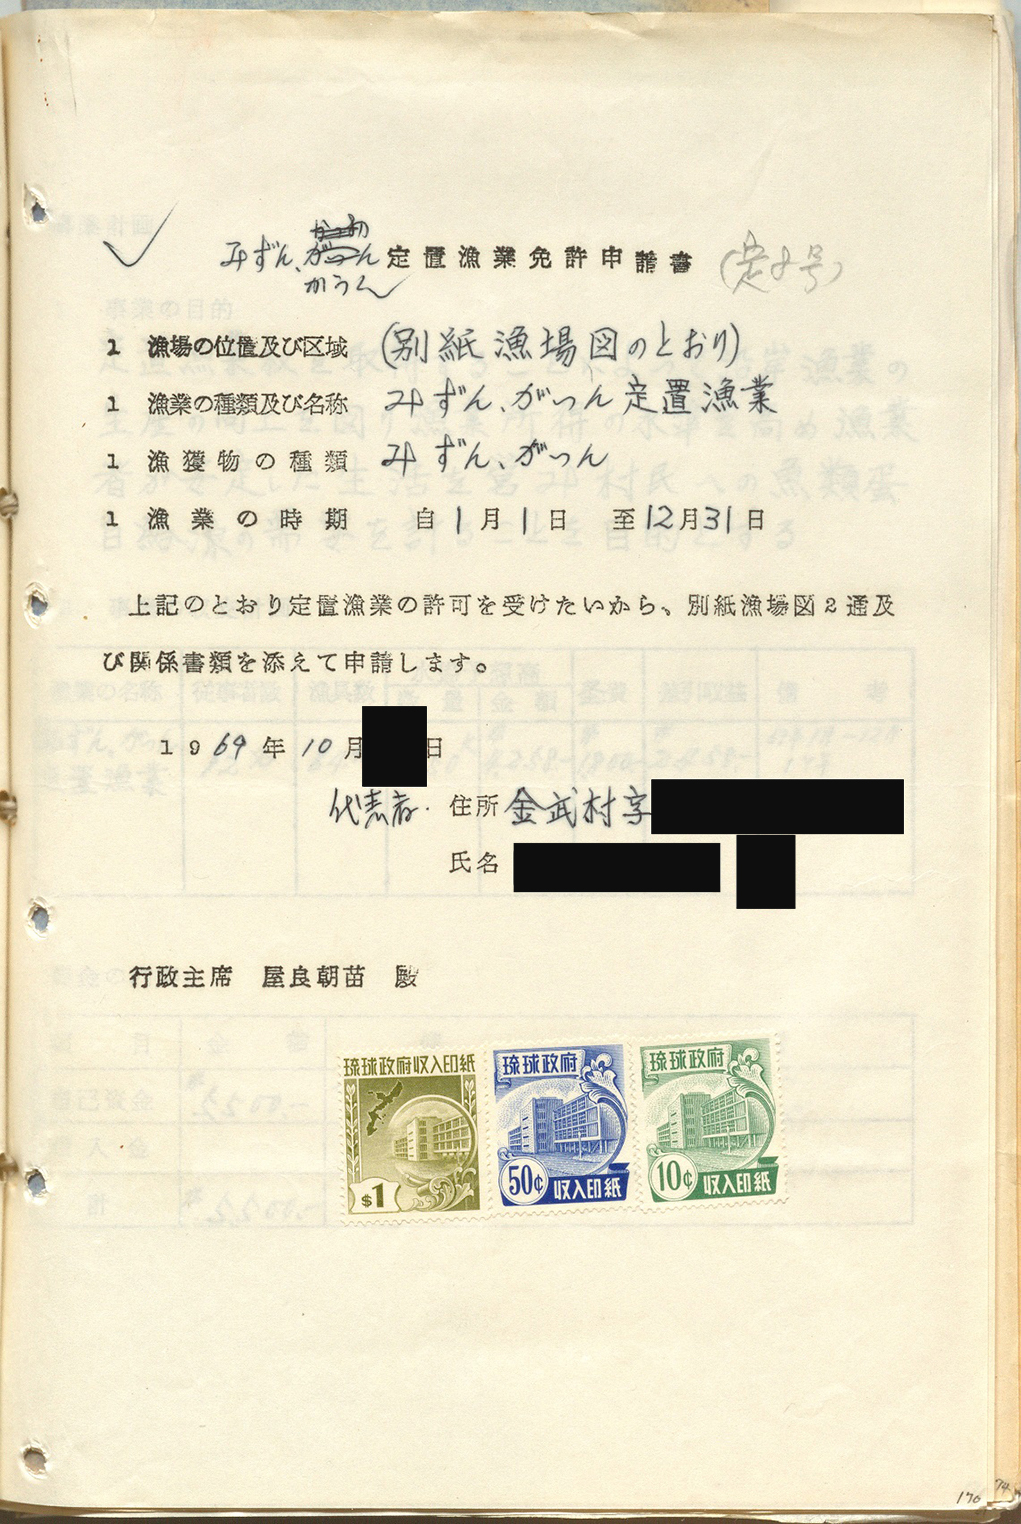 みずん、がつん定置漁業免許申請書 (定8号)
がつん
1 漁場の位置及び区域 (別紙漁場図のとおり)
1 漁業の種類及び名称 みずん、がつん定置漁業
1 漁獲物の種類 みずん、がつん
1 漁業の時期 自1月1日 至12月31日
上記のとおり定置漁業の許可を受けたいから、別紙漁場図2通及
び関係書類を添えて申請します。
1969年10月 日
代表者. 住所 金武村字
氏名
行政主席 屋良朝苗 殿
琉球政府収入印紙
$1
琉球政府
50¢ 収入印紙
琉球政府
10¢ 収入印紙
170